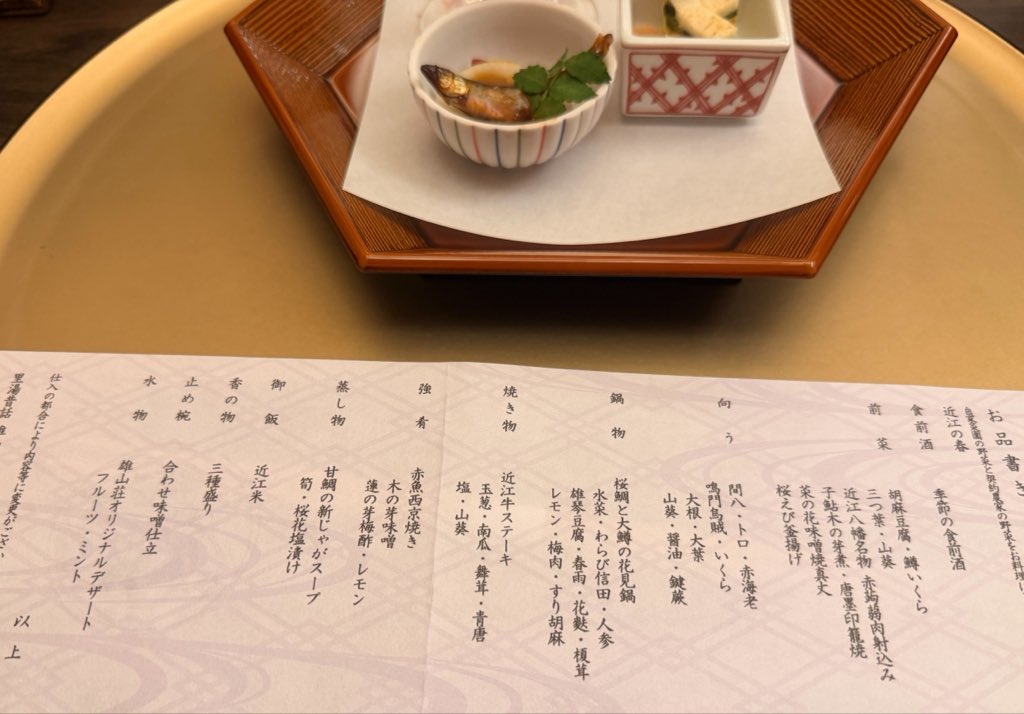 お品書き
自家菜園の野菜と契約農家の野菜をお料理に
近江の春
食前酒
季節の食前酒
前菜
胡麻豆腐・鱒いくら
三つ葉・山葵
近江八幡名物 赤蒟蒻肉射込み
子鮎木の芽煮・唐墨印籠焼
菜の花味噌焼真丈
桜えび釜揚げ
向う
間八・トロ・赤海老
鳴門烏賊・いくら
大根・大葉
山葵・醤油・鍵蕨
鍋物
桜鯛と大鱒の花見鍋
水菜・わらび信田・人参
雄琴豆腐・春雨・花麩・榎茸
レモン・梅肉・すり胡麻
焼き物
近江牛ステーキ
玉葱・南瓜・舞茸・青唐
塩・山葵
強肴
赤魚西京焼き
木の芽味噌
蓮の芽梅酢・レモン
蒸し物
甘鯛の新じゃがスープ
筍・桜花塩漬け
御飯
近江米
香の物
三種盛り
止め椀
合わせ味噌仕立
水物
雄山荘オリジナルデザート
フルーツ・ミント
以上
仕入の都合により内容等に変更がござい
里湯昔話 雄山